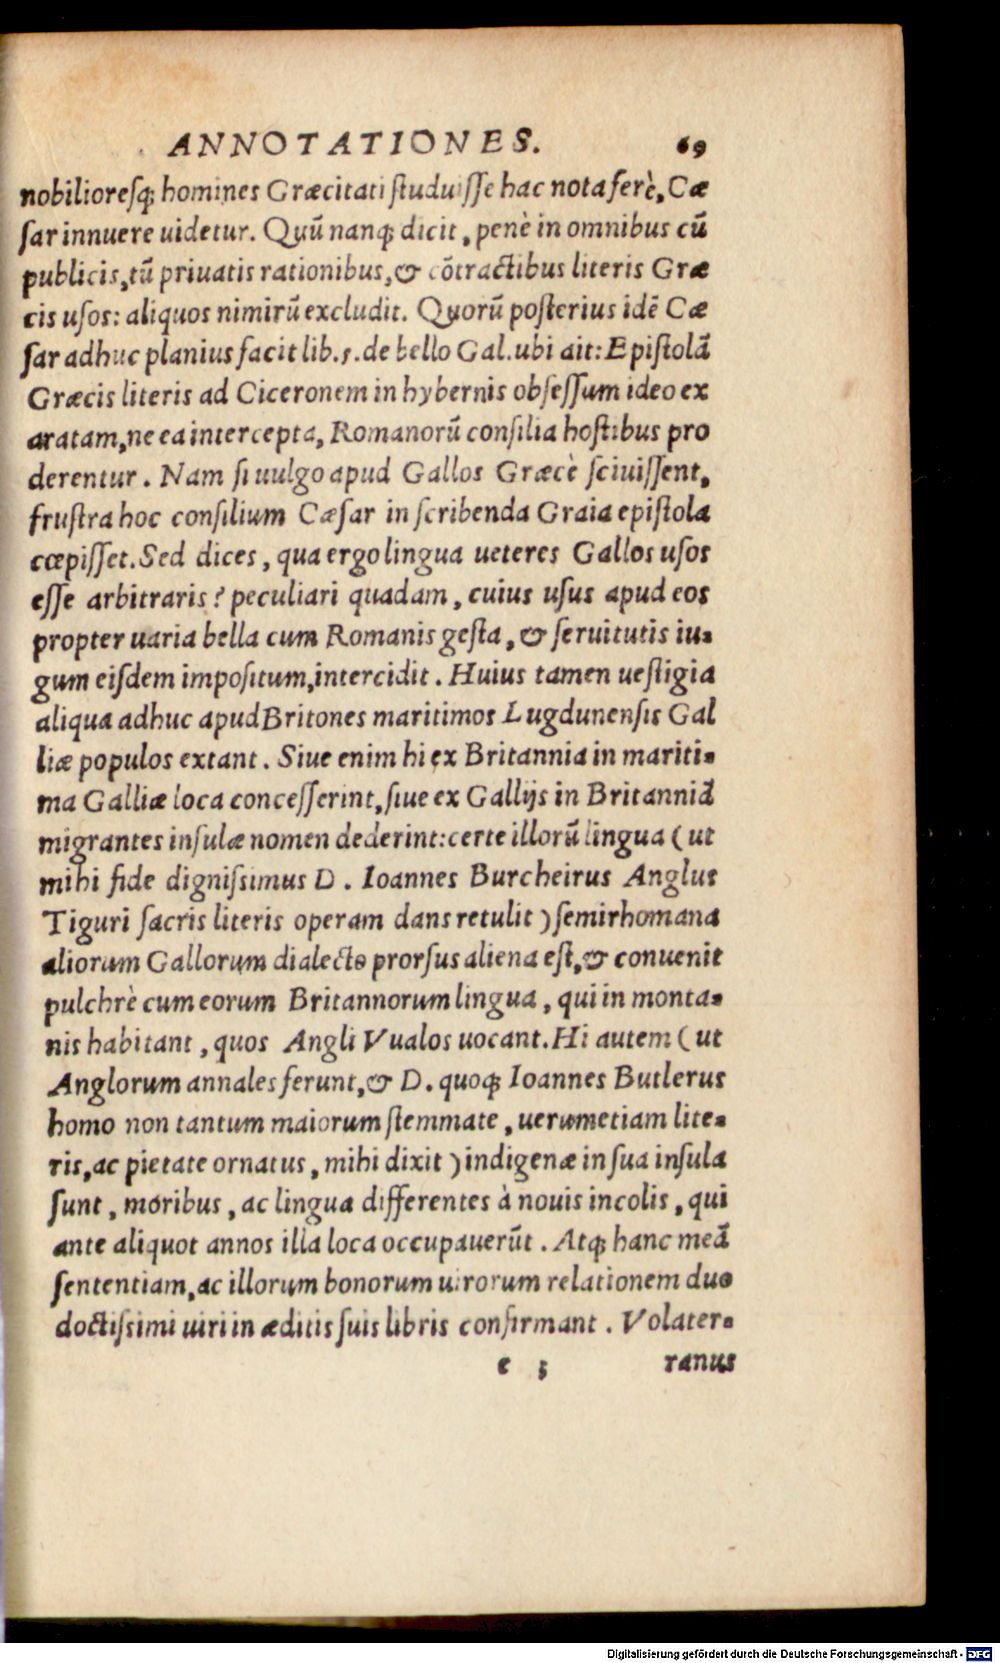 ANNOTATIONES. 69
nobilioresq́; homines Græcitati ſtuduiſſe hac nota ferè, Cæ
ſar innuere uidetur. Quū nanq; dicit, penè in omnibus cū
publicis, tū priuatis rationibus, & cōtractibus literis Græ
cis uſos: aliquos nimirū excludit. Quorū poſterius idē Cæ
ſar adhuc planius facit lib. 5. de bello Gal. ubi ait: Epiſtolā
Græcis literis ad Ciceronem in hybernis obſeſſum ideo ex
aratam, ne ea intercepta, Romanorū conſilia hoſtibus pro
derentur. Nam ſi uulgo apud Gallos Græcè ſciuiſſent,
fruſtra hoc conſilium Cæſar in ſcribenda Graia epiſtola
cœpiſſet. Sed dices, qua ergo lingua ueteres Gallos uſos
eſſe arbitraris? peculiari quadam, cuius uſus apud eos
propter uaria bella cum Romanis geſta, & ſeruitutis iu-
gum eiſdem impoſitum, intercidit. Huius tamen ueſtigia
aliqua adhuc apud Britones maritimos Lugdunenſis Gal
liæ populos extant. Siue enim hi ex Britannia in mariti-
ma Galliæ loca conceſſerint, ſiue ex Gallijs in Britanniā
migrantes inſulæ nomen dederint: certe illorū lingua (ut
mihi fide digniſsimus D. Ioannes Burcheirus Anglus
Tiguri ſacris literis operam dans retulit) ſemirhomana
aliorum Gallorum dialecto prorſus aliena eſt, & conuenit
pulchrè cum eorum Britannorum lingua, qui in monta-
nis habitant, quos Angli Vualos uocant. Hi autem (ut
Anglorum annales ferunt, & D. quoq; Ioannes Butlerus
homo non tantum maiorum ſtemmate, uerumetiam lite-
ris, ac pietate ornatus, mihi dixit) indigenæ in ſua inſula
ſunt, moribus, ac lingua differentes à nouis incolis, qui
ante aliquot annos illa loca occupauerūt. Atq; hanc meā
ſententiam, ac illorum bonorum uirorum relationem duo
doctiſsimi uiri in æditis ſuis libris confirmant. Volater-
e 5 ranus
Digitalisierung gefördert durch die Deutsche Forschungsgemeinschaft - DFG